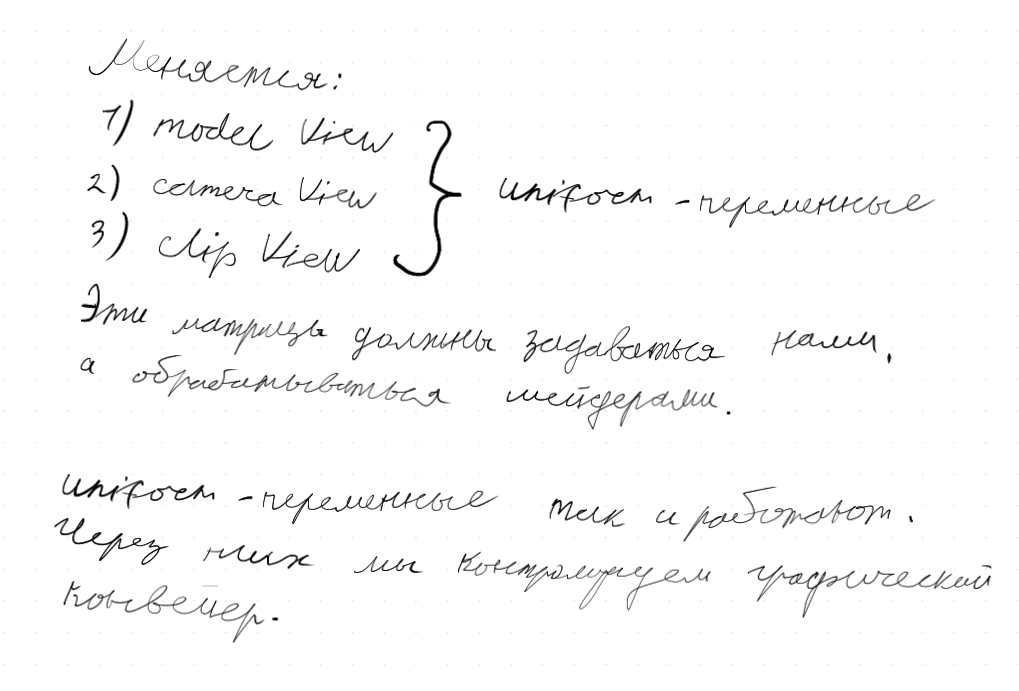 Меняется:
1) model View
2) camera View
3) clip View
} uniform - переменные
Эти матрицы должны задаваться нами,
а обрабатываться шейдерами.
uniform - переменные так и работают.
Через них мы контролируем графический
конвейер.